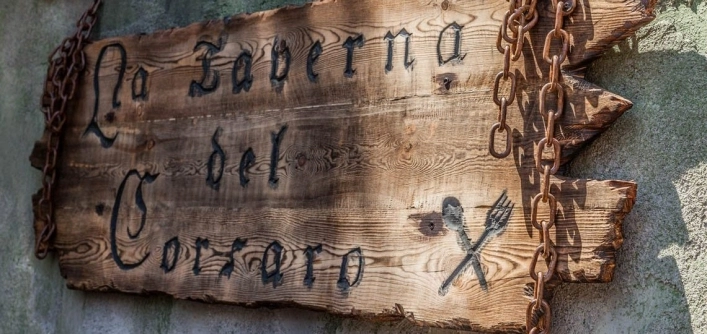 La Taverna
del
Corsaro